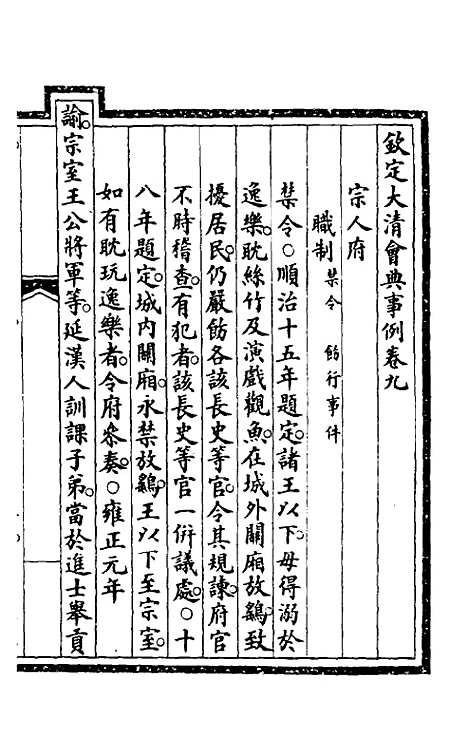 欽定大清會典事例卷九
宗人府
職制 禁令 飭行事件
禁令○順治十五年題定。諸王以下。毋得溺於
逸樂。耽絲竹及演戲觀魚。在城外關廂放鷂。致
擾居民。仍嚴飭各該長史等官。令其規諫。府官
不時稽查。有犯者。該長史等官一倂議處。○十
八年題定。城內關廂。永禁放鷂。王以下至宗室。
如有耽玩逸樂者。令府叅奏。○雍正元年
諭。宗室王公將軍等。延漢人訓課子弟。當於進士舉貢